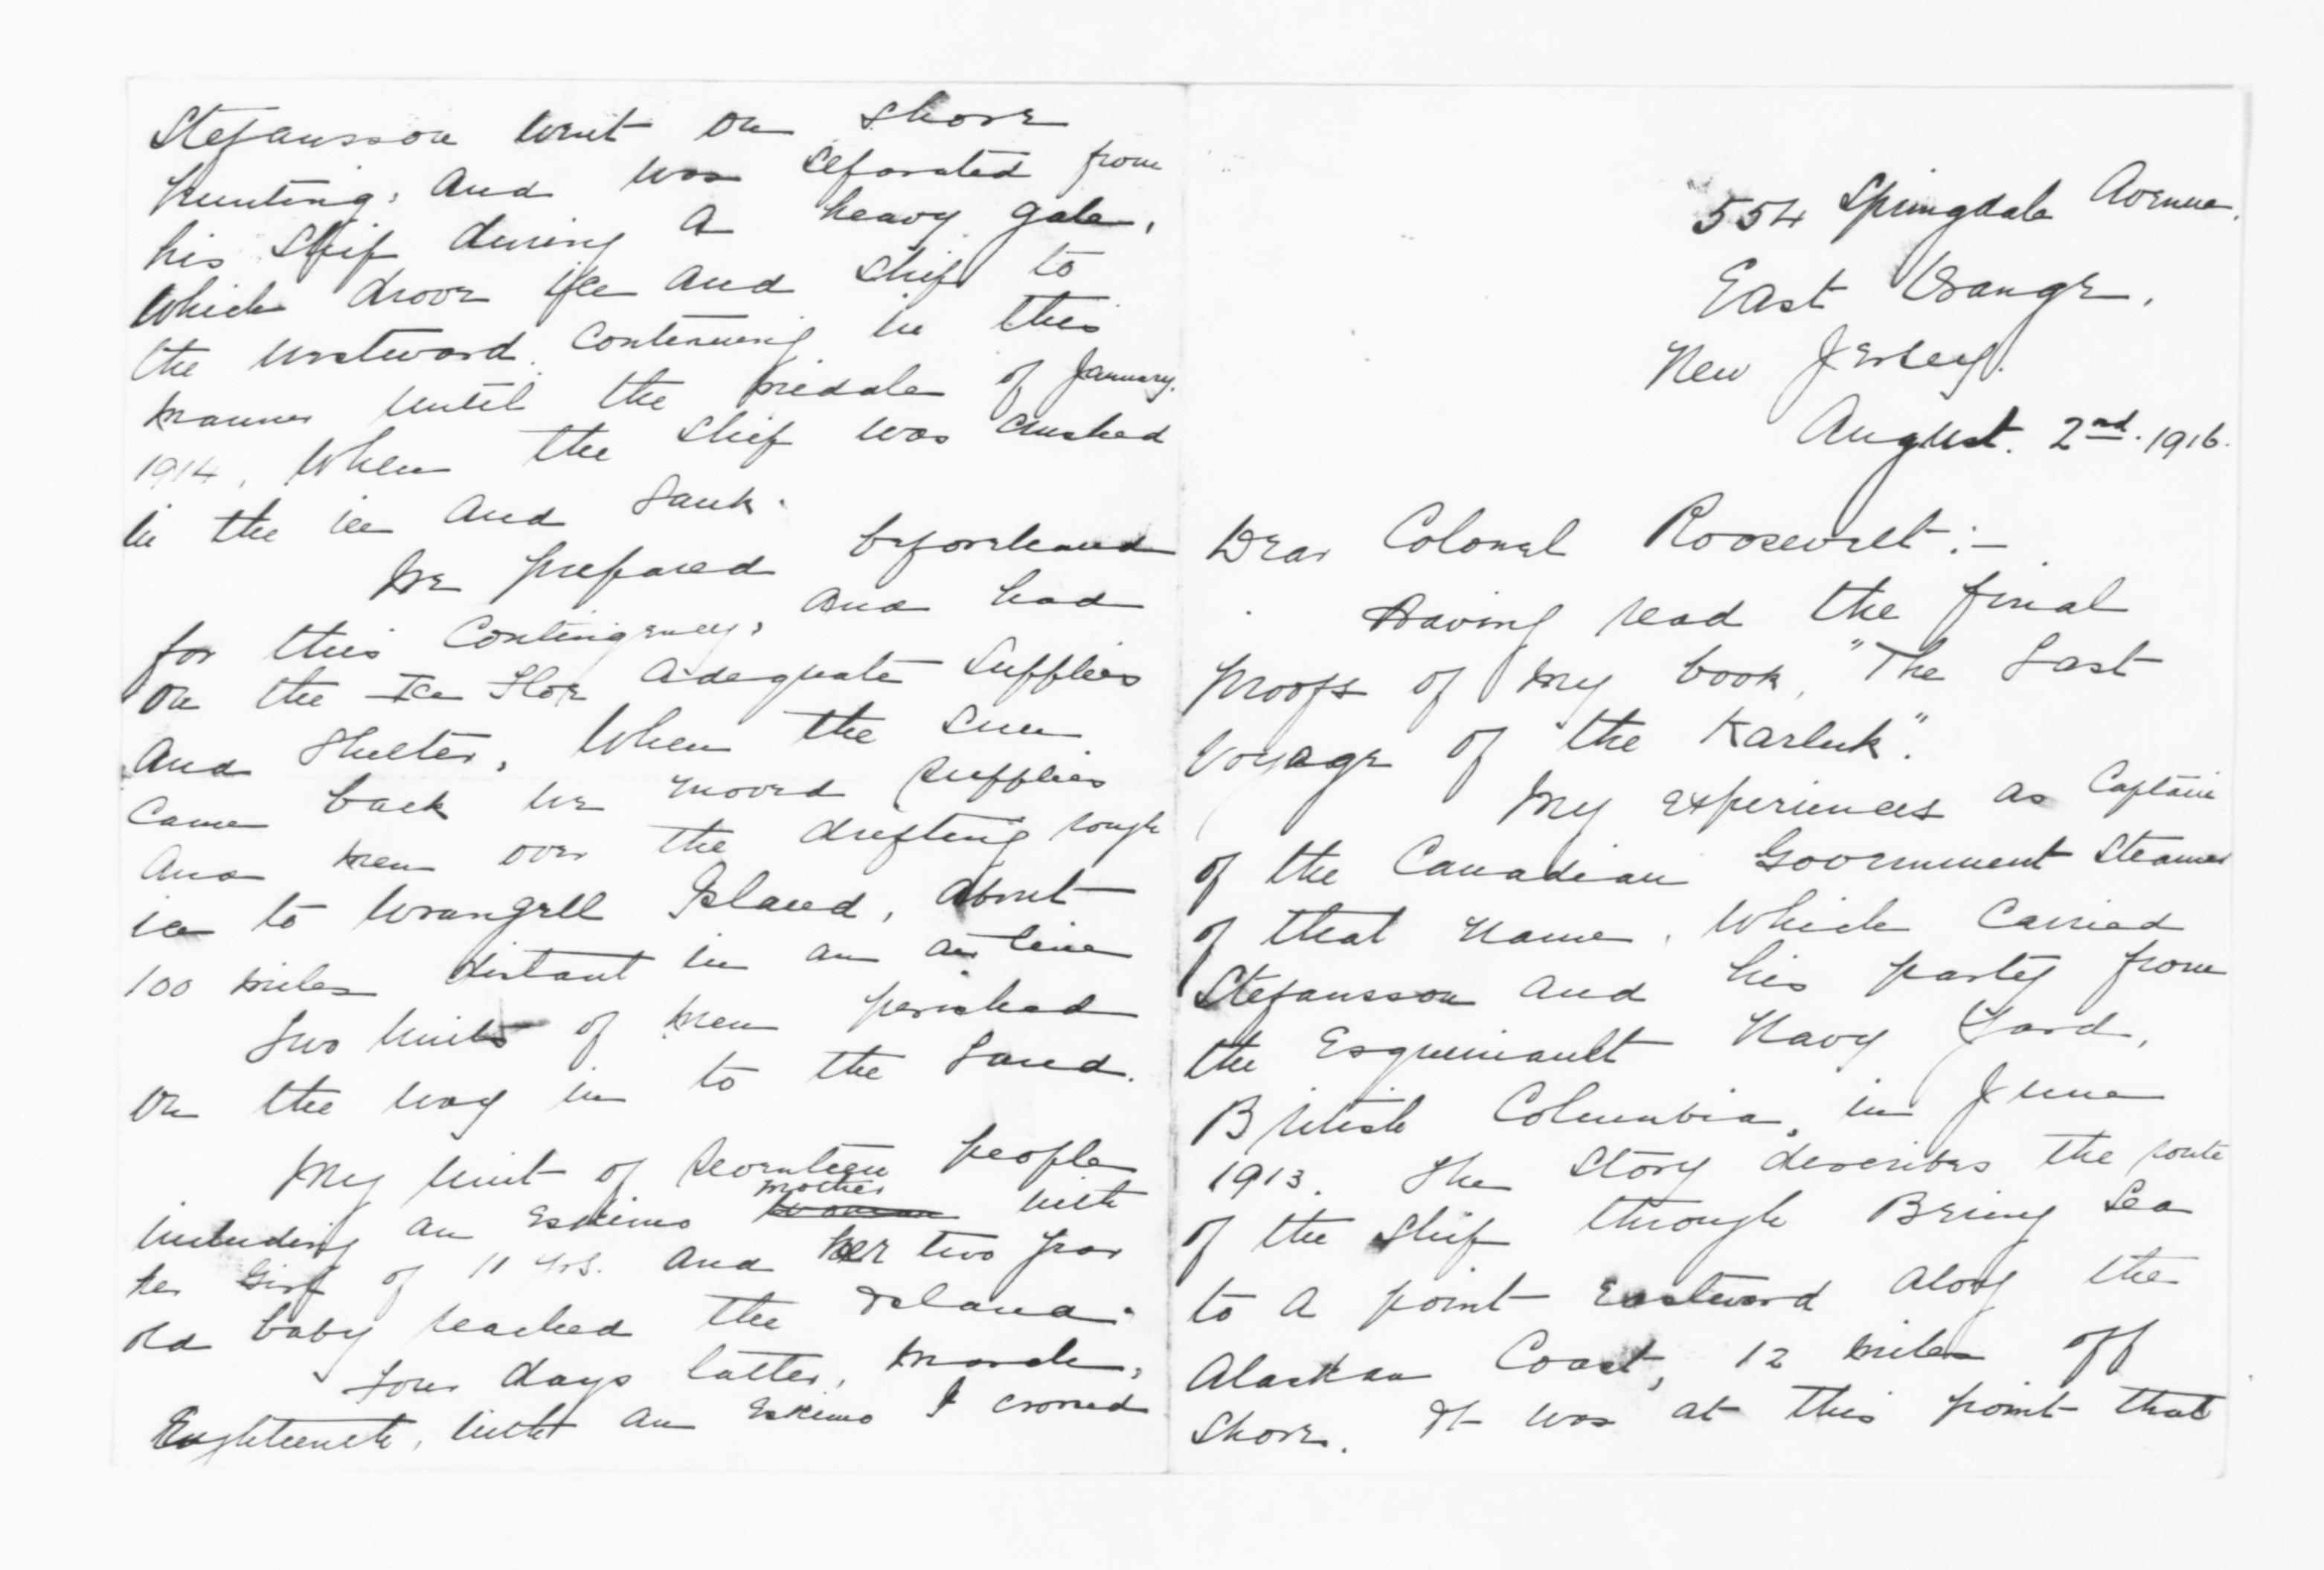 554 Springdale Avenue.
East Orange,
New Jersey.
August. 2nd. 1916.
Dear Colonel Roosevelt:-
Having read the final
proofs of my book, "The Last
Voyage of the Karluk".
My experiences as Captain
of the Canadian Government Steamer
of that name, which carried
Stefansson and his party from
the Esquimault Navy Yard,
British Columbia, in June
1913. The story describes the route
of the ship through Bering Sea
to a point Eastward along the
Alaskan Coast, 12 miles off
shore. It was at this point that
Stefansson went on shore
hunting, and was separated from
his ship during a heavy gale,
which drove ice and ship to
the westward. Continuing in this
manner until the middle of January.
1914, when the ship was crushed
in the ice and sank.
We prepared beforehand
for this contingency, and had
on the Ice Floe adequate supplies
and shelter, when the sun
came back we moved supplies
and men over the drifting rough
ice to Wrangell Island, about
100 miles distant in an air line
Two units of men perished
on the way in to the land.
My unit of seventeen people
including an Eskimo mother with
her girl of 11 yrs. and her two year
old baby reached the Island.
Four days latter, March,
Eughteenth, with an Eskimo I crossed